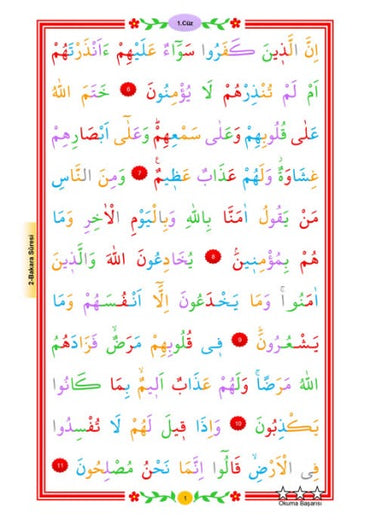 1.Cüz
اِنَّ الَّذ۪ينَ كَفَرُوا سَوَٓاءٌ عَلَيْهِمْ ءَاَنْذَرْتَهُمْ
اَمْ لَمْ تُنْذِرْهُمْ لَا يُؤْمِنُونَ 6 خَتَمَ اللّٰهُ
عَلٰى قُلُوبِهِمْ وَعَلٰى سَمْعِهِمْۜ وَعَلٰٓى اَبْصَارِهِمْ
غِشَاوَةٌۘ وَلَهُمْ عَذَابٌ عَظ۪يمٌ۟ 7 وَمِنَ النَّاسِ
مَنْ يَقُولُ اٰمَنَّا بِاللّٰهِ وَبِالْيَوْمِ الْاٰخِرِ وَمَا
هُمْ بِمُؤْمِن۪ينَۢ 8 يُخَادِعُونَ اللّٰهَ وَالَّذ۪ينَ
اٰمَنُواۚ وَمَا يَخْدَعُونَ اِلَّٓا اَنْفُسَهُمْ وَمَا
يَشْعُرُونَۜ 9 ف۪ي قُلُوبِهِمْ مَرَضٌۙ فَزَادَهُمُ
اللّٰهُ مَرَضًاۚ وَلَهُمْ عَذَابٌ اَل۪يمٌۙ بِمَا كَانُوا
يَكْذِبُونَ 10 وَاِذَا ق۪يلَ لَهُمْ لَا تُفْسِدُوا
فِي الْاَرْضِۙ قَالُٓوا اِنَّمَا نَحْنُ مُصْلِحُونَ 11
2-Bakara Sûresi
1
Okuma Başarısı